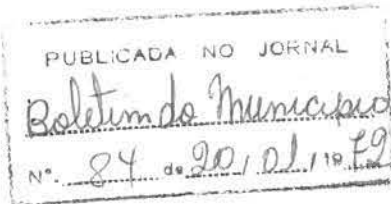 PUBLICADA NO JORNAL
Boletim do Municipio
N°. 84 de 20, 01, 1972